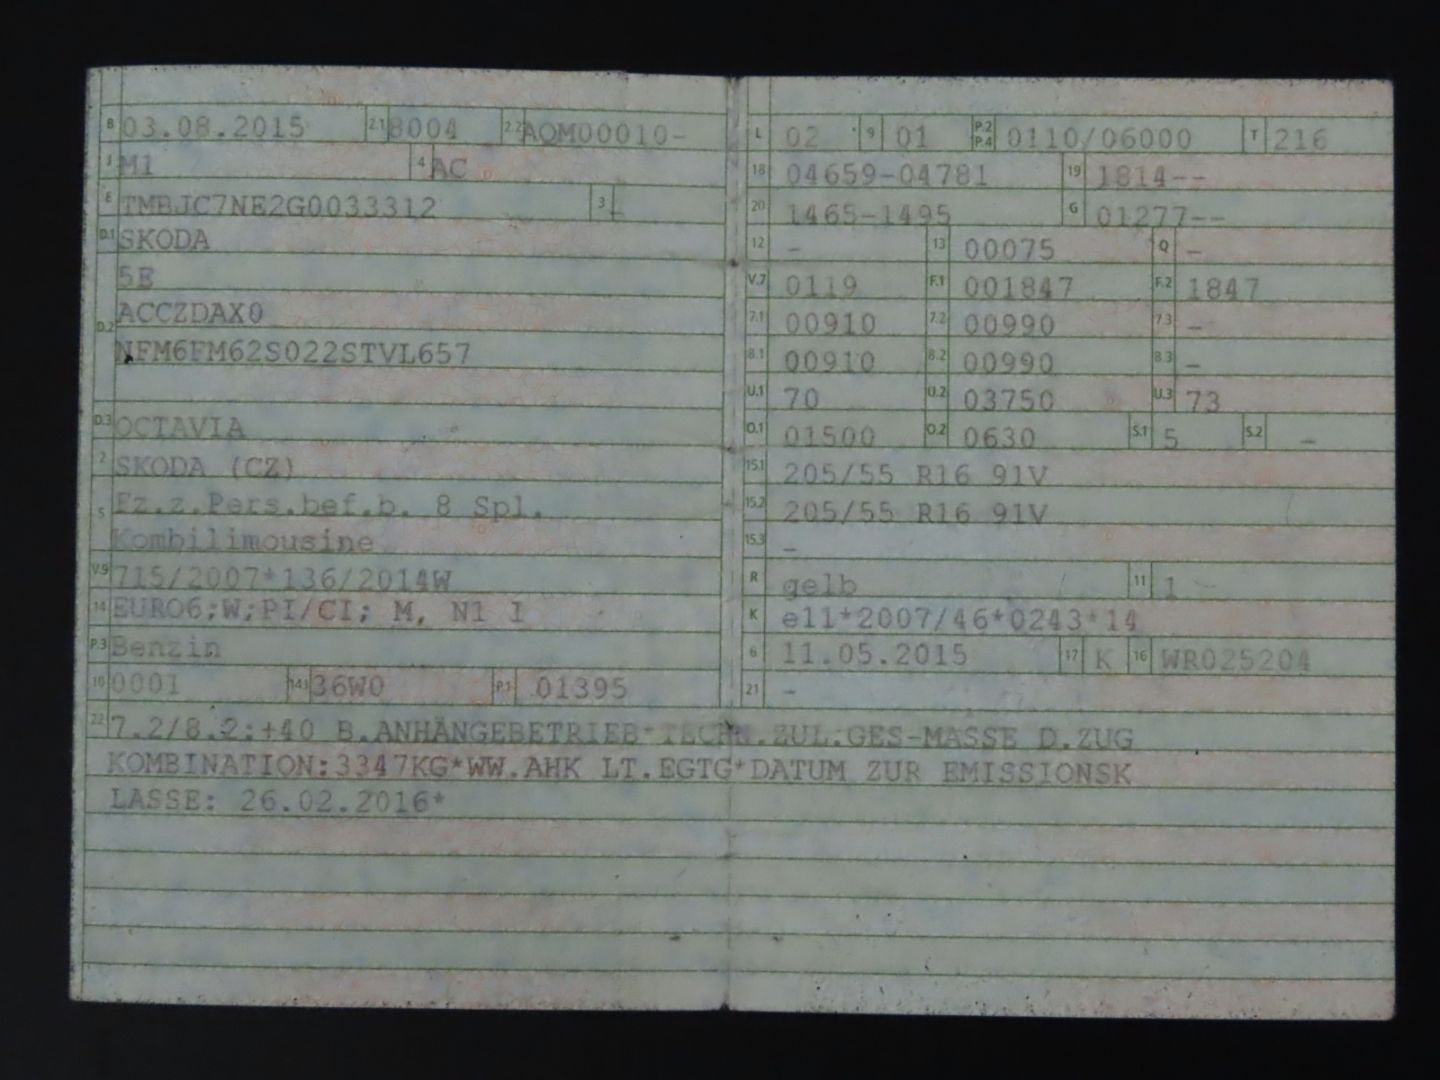 B 03.08.2015 2.1 8004 2.2 AQM00010-
J M1 4 AC
E TMBJC7NE2G0033312 3 -
D.1 SKODA
5E
D.2 ACCZDAX0
NFM6FM62S022STVL657
D.3 OCTAVIA
2 SKODA (CZ)
5 Fz.z.Pers.bef.b. 8 Spl.
Kombilimousine
V.9 715/2007*136/2014W
14 EURO6;W;PI/CI; M, N1 I
P.3 Benzin
10 0001 14.1 36W0 P.1 01395
L 02 9 01 P.2 P.4 0110/06000 T 216
18 04659-04781 19 1814--
20 1465-1495 G 01277--
12 - 13 00075 Q -
V.7 0119 F.1 001847 F.2 1847
7.1 00910 7.2 00990 7.3 -
8.1 00910 8.2 00990 8.3 -
U.1 70 U.2 03750 U.3 73
O.1 01500 O.2 0630 S.1 5 S.2 -
15.1 205/55 R16 91V
15.2 205/55 R16 91V
15.3 -
R gelb 11 1
K e11*2007/46*0243*14
6 11.05.2015 17 K 16 WR025204
21 -
22 7.2/8.2:+40 B.ANHÄNGEBETRIEB*TECHN.ZUL.GES-MASSE D.ZUG
KOMBINATION:3347KG*WW.AHK LT.EGTG*DATUM ZUR EMISSIONSK
LASSE: 26.02.2016*